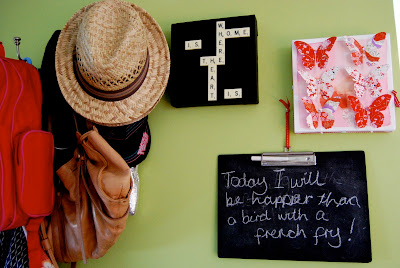 HOME
IS
WHERE
THE
HEART
IS
Today I will
be happier than
a bird with a
french fry!